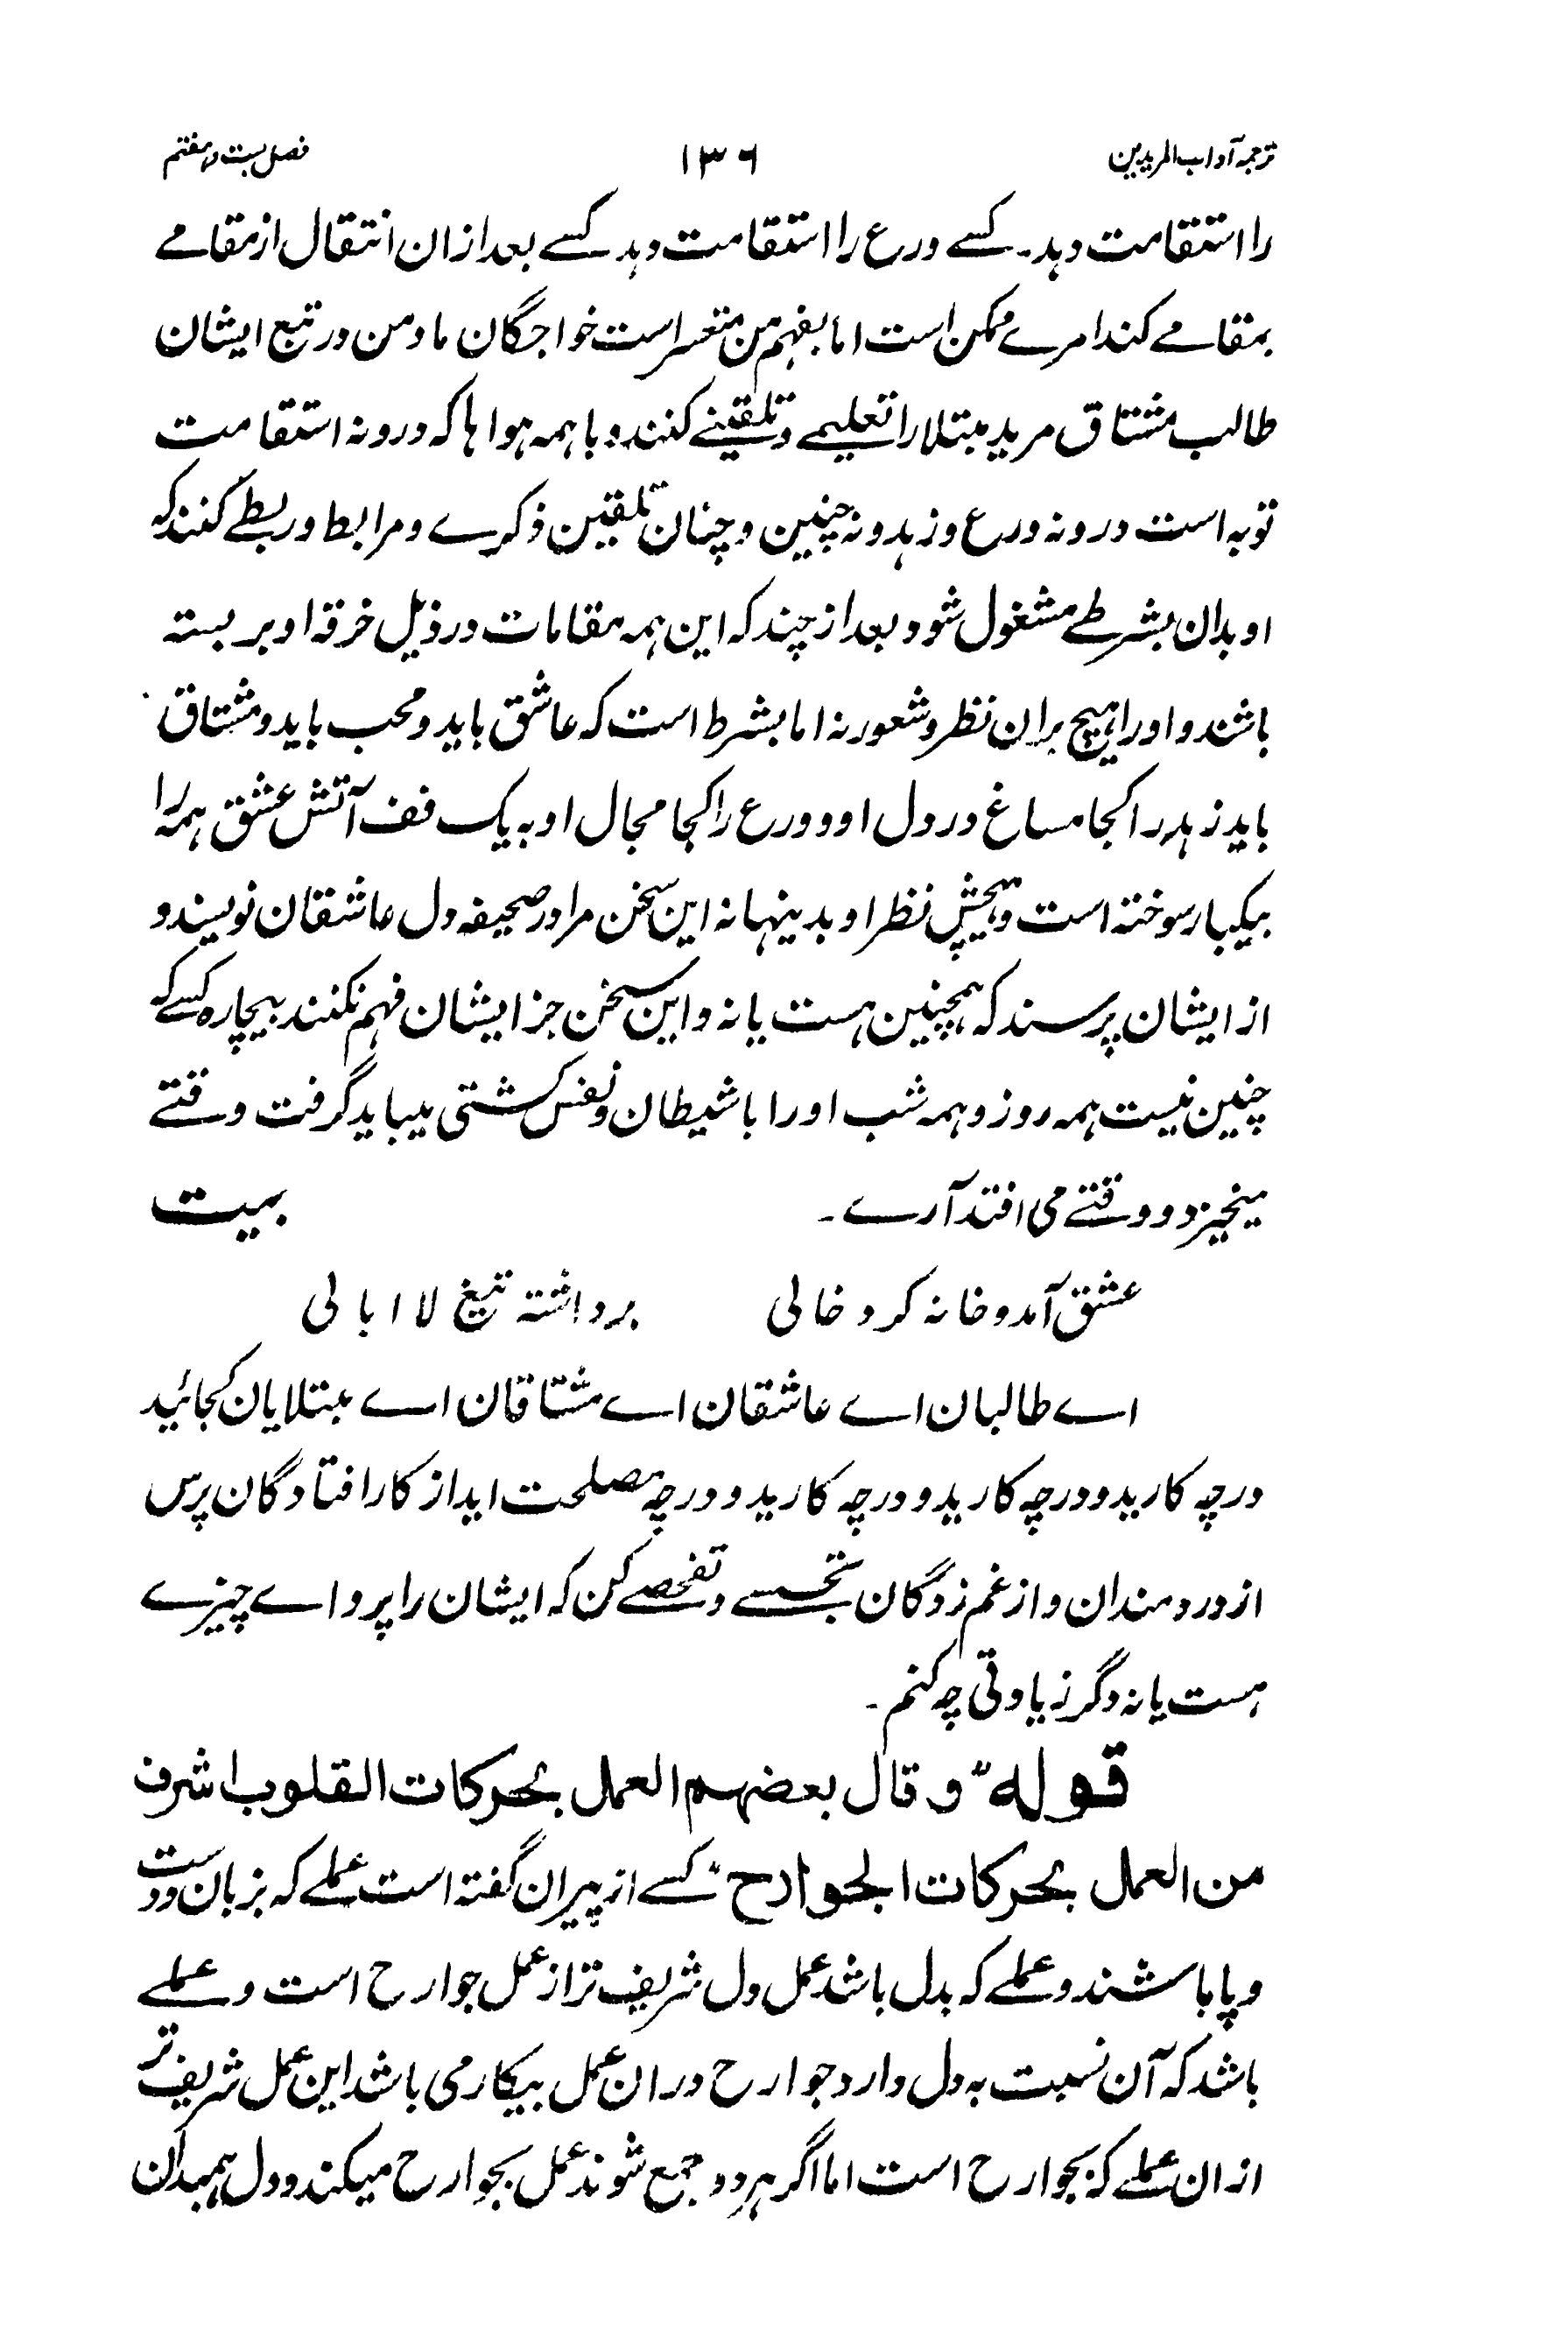 ترجمہ آداب المریدین ۱۳۶ فصل بست و ہفتم
را استقامت دہد۔ کسے ورع را استقامت دہد کسے بعد ازان انتقال از مقامے
بمقامے کند امرے ممکن است اما بفہم من متعسر است خواجگان ما و من در تبع ایشان
طالب مشتاق مرید مبتلا را تعلیمے و تلقینے کنند و با ہمہ ہوا ہا کہ درو نہ استقامت
توبہ است درو نہ ورع و زہد و نہ چنین و چنان تلقین ذکرے و مرابط و ربطے کنند کہ
او بدان بشرطے مشغول شود بعد از چند کہ این ہمہ مقامات در ذیل خرقہ او بر بستہ
باشند و اورا ہیچ بران نظر و شعور نہ اما بشرط است کہ عاشق باید و محب باید و مشتاق
باید زہد را کجا مساغ در دل او و ورع را کجا مجال او بہ یک فف آتش عشق ہمہ را
بیکبار سوختہ است و ہیچش نظر او بدینہا نہ این سخن مرا در صحیفہ دل عاشقان نویسند و
از ایشان پرسند کہ ہمچنین ہست یا نہ و این سخن جز ایشان فہم نکنند بیچارہ کسے کہ
چنین نیست ہمہ روز و ہمہ شب اورا با شیطان و نفس کشتی میباید گرفت وقتے
میخیزد و وقتے می افتد آرے۔ بیت
عشق آمد و خانہ کرد خالی برداشتہ تیغ لا ابالی
اے طالبان اے عاشقان اے مشتاقان اے مبتلایان کجائید
درچہ کارید و درچہ کارید و درچہ کارید و درچہ مصلحت اید از کار افتادگان پرس
از دردمندان و از غم زدگان تجسسے و تفحصے کن کہ ایشان را پرواے چیزے
ہست یا نہ دگر زیادتی چہ کنم۔
قولہ" و قال بعضہم العمل بحرکات القلوب اشرف
من العمل بحرکات الجوارح" کسے از پیران گفتہ است عملے کہ بزبان و دست
و پا باشند و عملے کہ بدل باشد عمل دل شریف تر از عمل جوارح است و عملے
باشد کہ آن نسبت بہ دل دارد جوارح دران عمل بیکار می باشد این عمل شریف تر
ازان عملے کہ بجوارح است اما اگر ہر دو جمع شوند عمل بجوارح میکند و دل ہمبدان